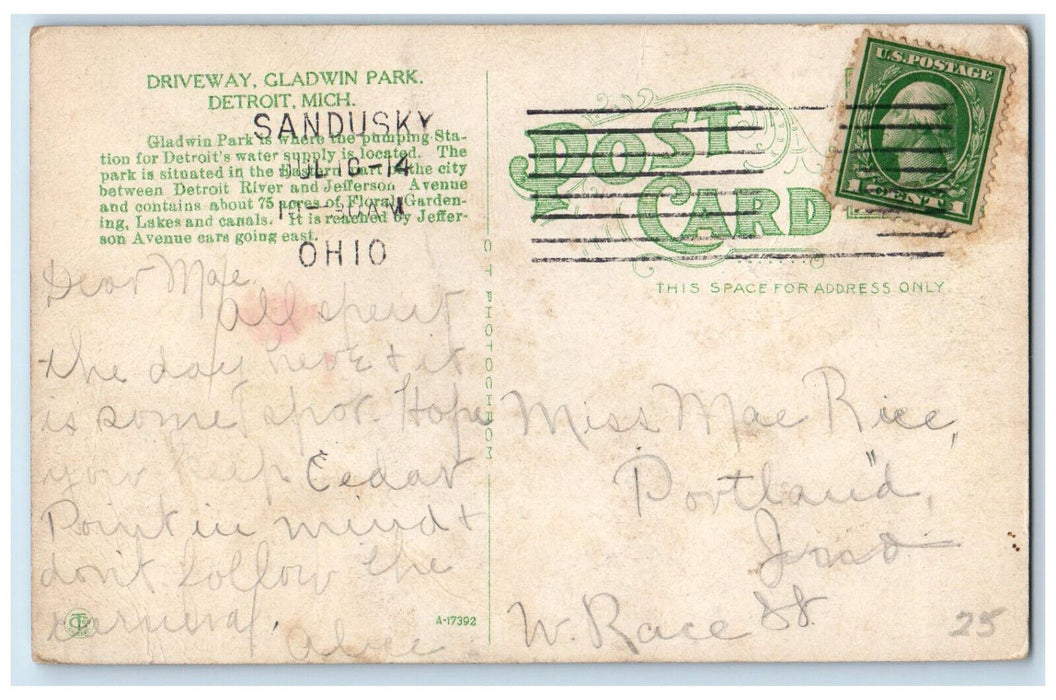 DRIVEWAY, GLADWIN PARK.
DETROIT, MICH.
Gladwin Park is where the pumping Sta-
tion for Detroit's water supply is located. The
park is situated in the Eastern part of the city
between Detroit River and Jefferson Avenue
and contains about 75 acres of Floral Garden-
ing, Lakes and canals. It is reached by Jeffer-
son Avenue cars going east.
SANDUSKY
JUL 10-14
OHIO
Dear Mae,
All spent
the day here & it
is some spot. Hope
you keep Cedar
Point in mind &
don't follow the
carnival.
Alice
A-17392
C T PHOTOCHROM
POST
CARD
THIS SPACE FOR ADDRESS ONLY.
U.S. POSTAGE
1 CENT 1
Miss Mae Rice,
Portland,
Ind
W. Race St.
25